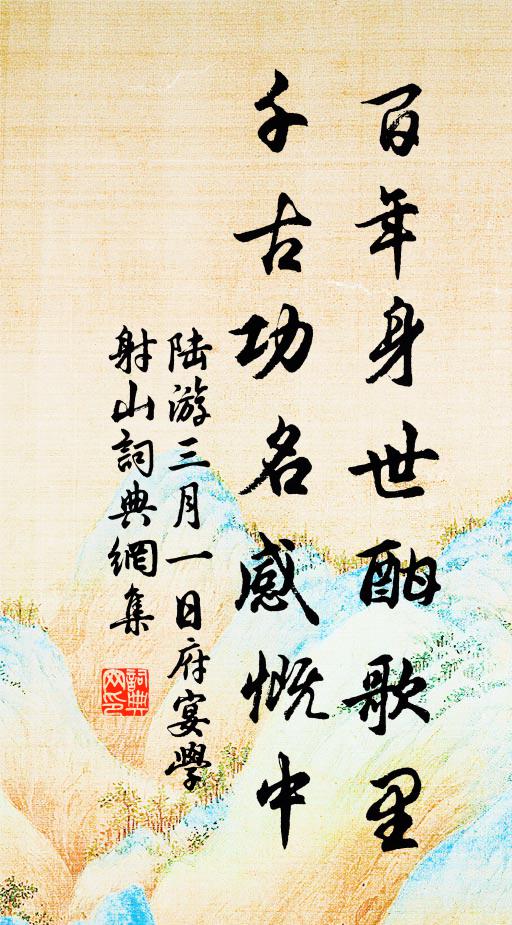 百年身世酣歌里
千古功名感慨中
陆游三月一日府宴學
射山詞典網集
詞典
网印